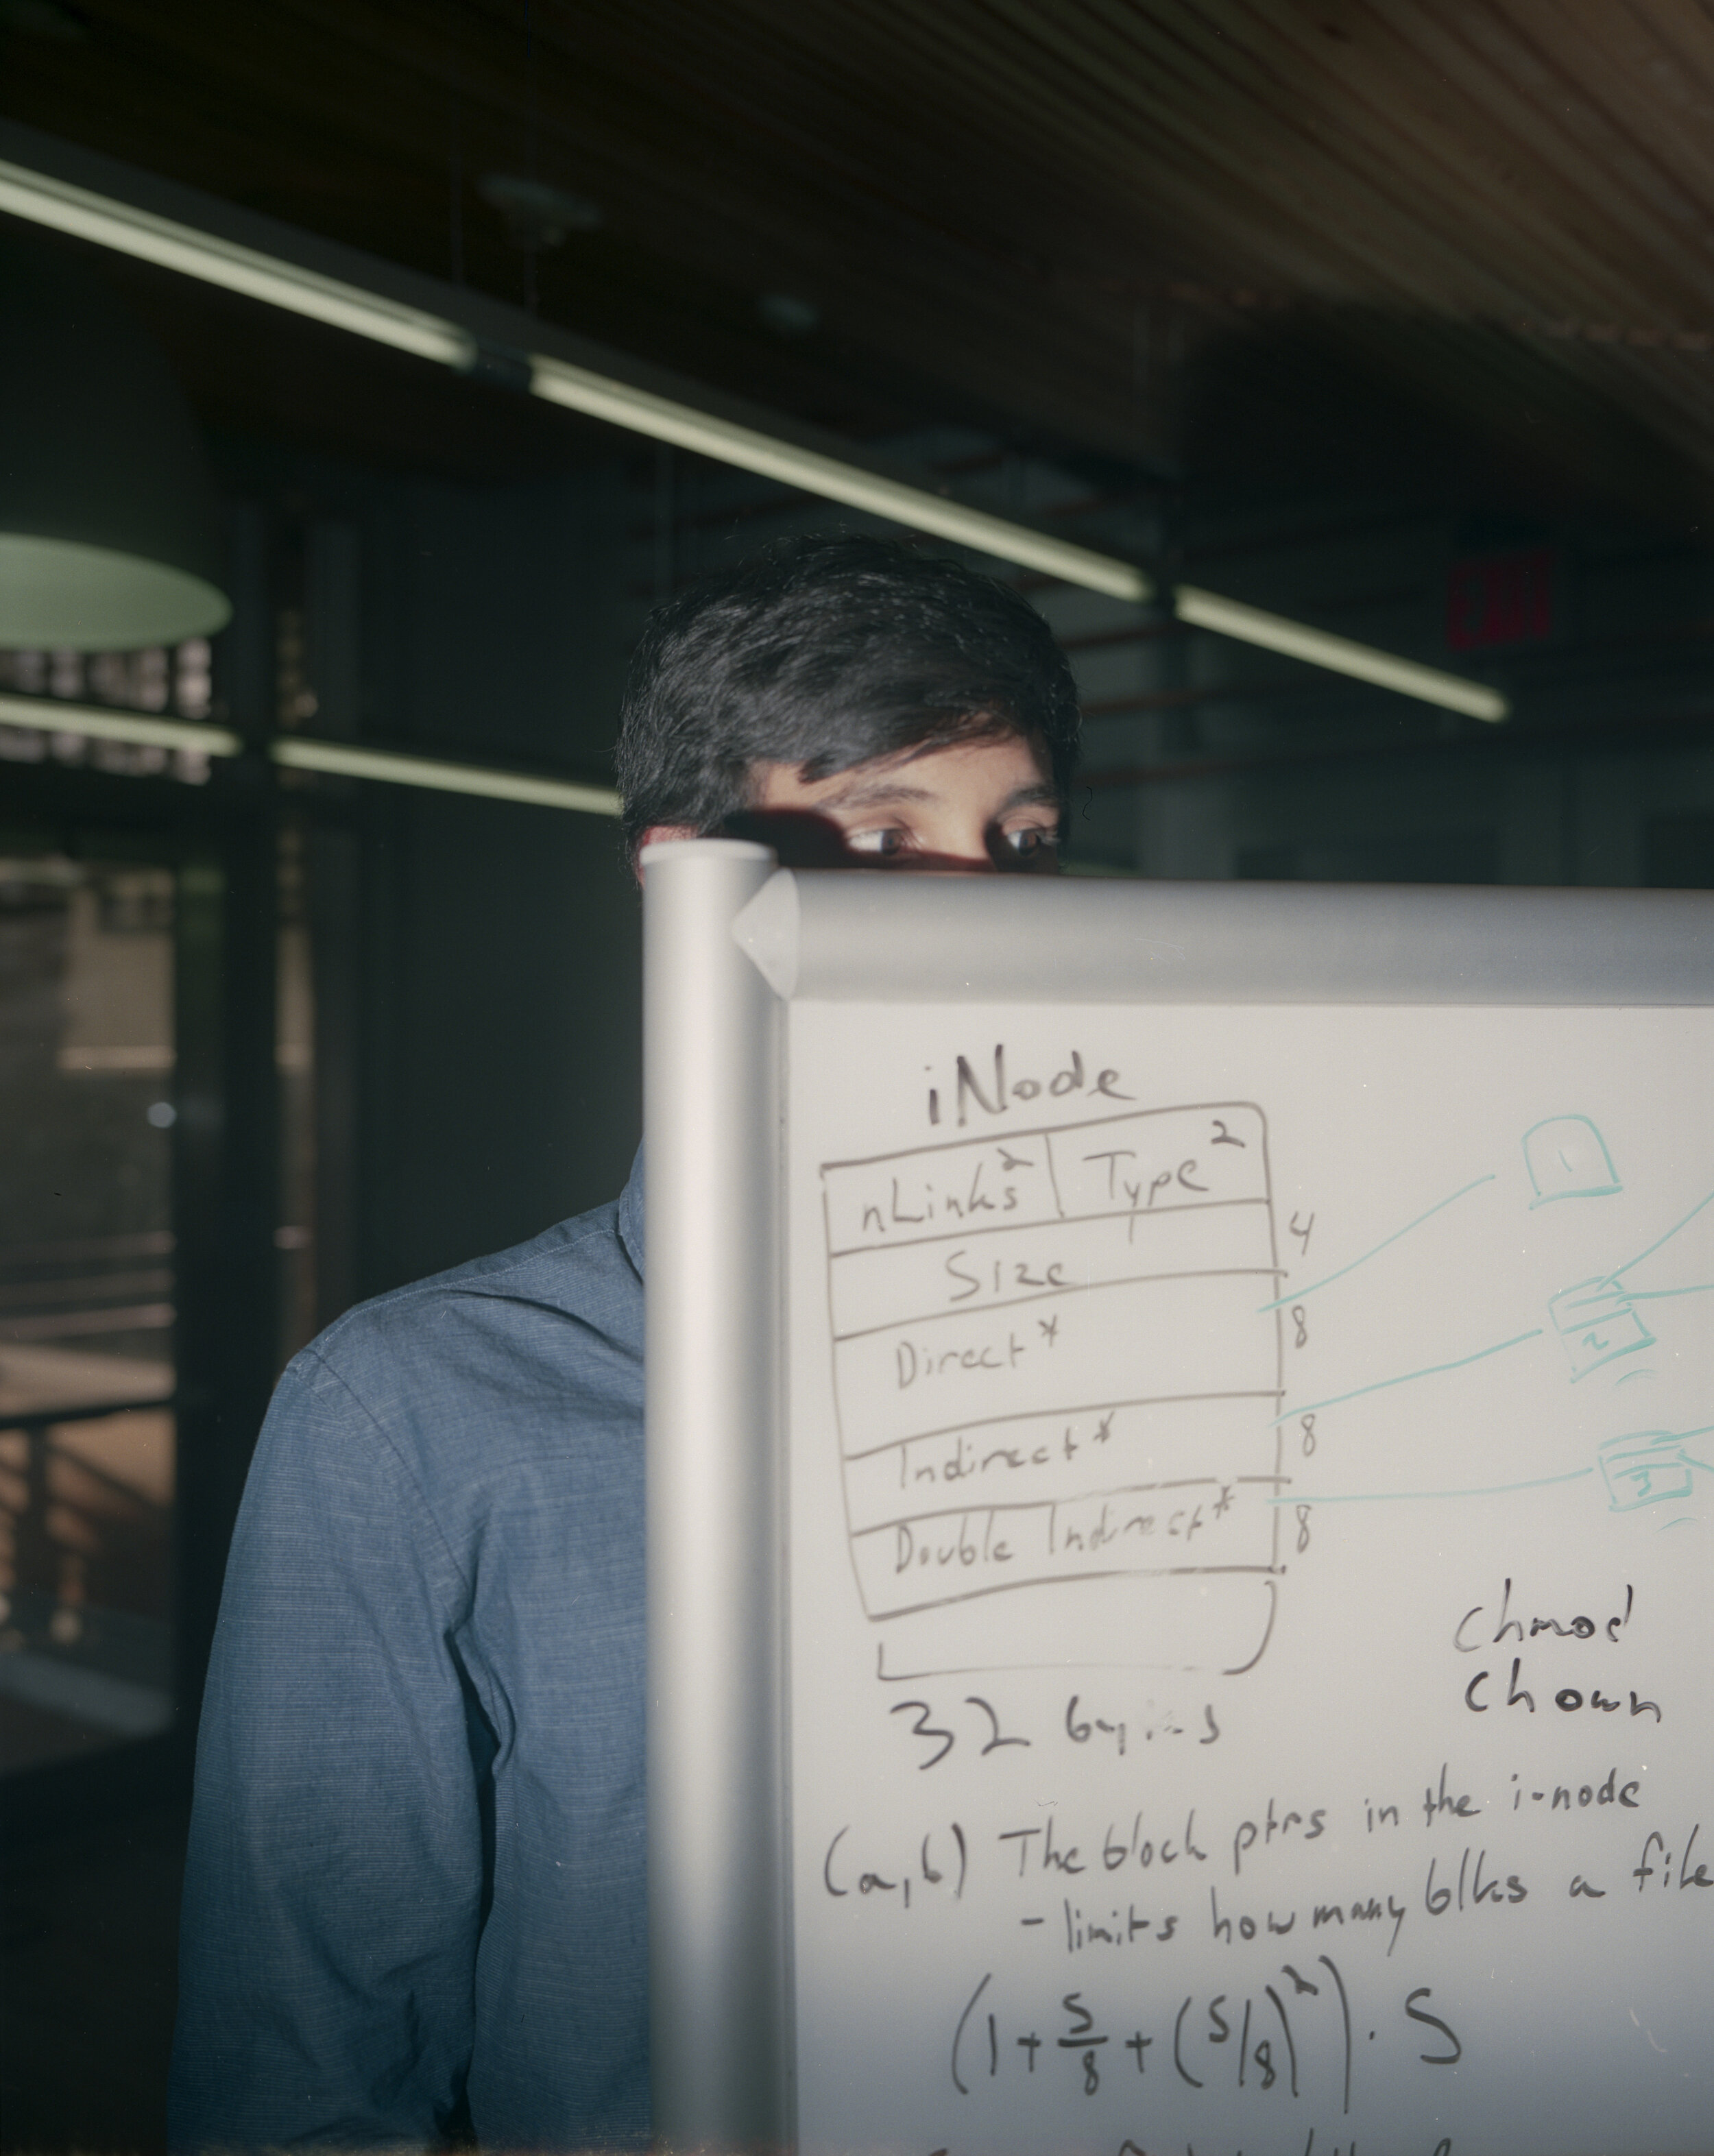 EXIT
iNode
nLinks² Type²
Size 4
Direct* 8
Indirect* 8
Double Indirect* 8
1
2
3
32
chmod
chown
(a,b) The block ptrs in the i-node
- limits how many blks a file
(1 + S/8 + (S/8)²) · S